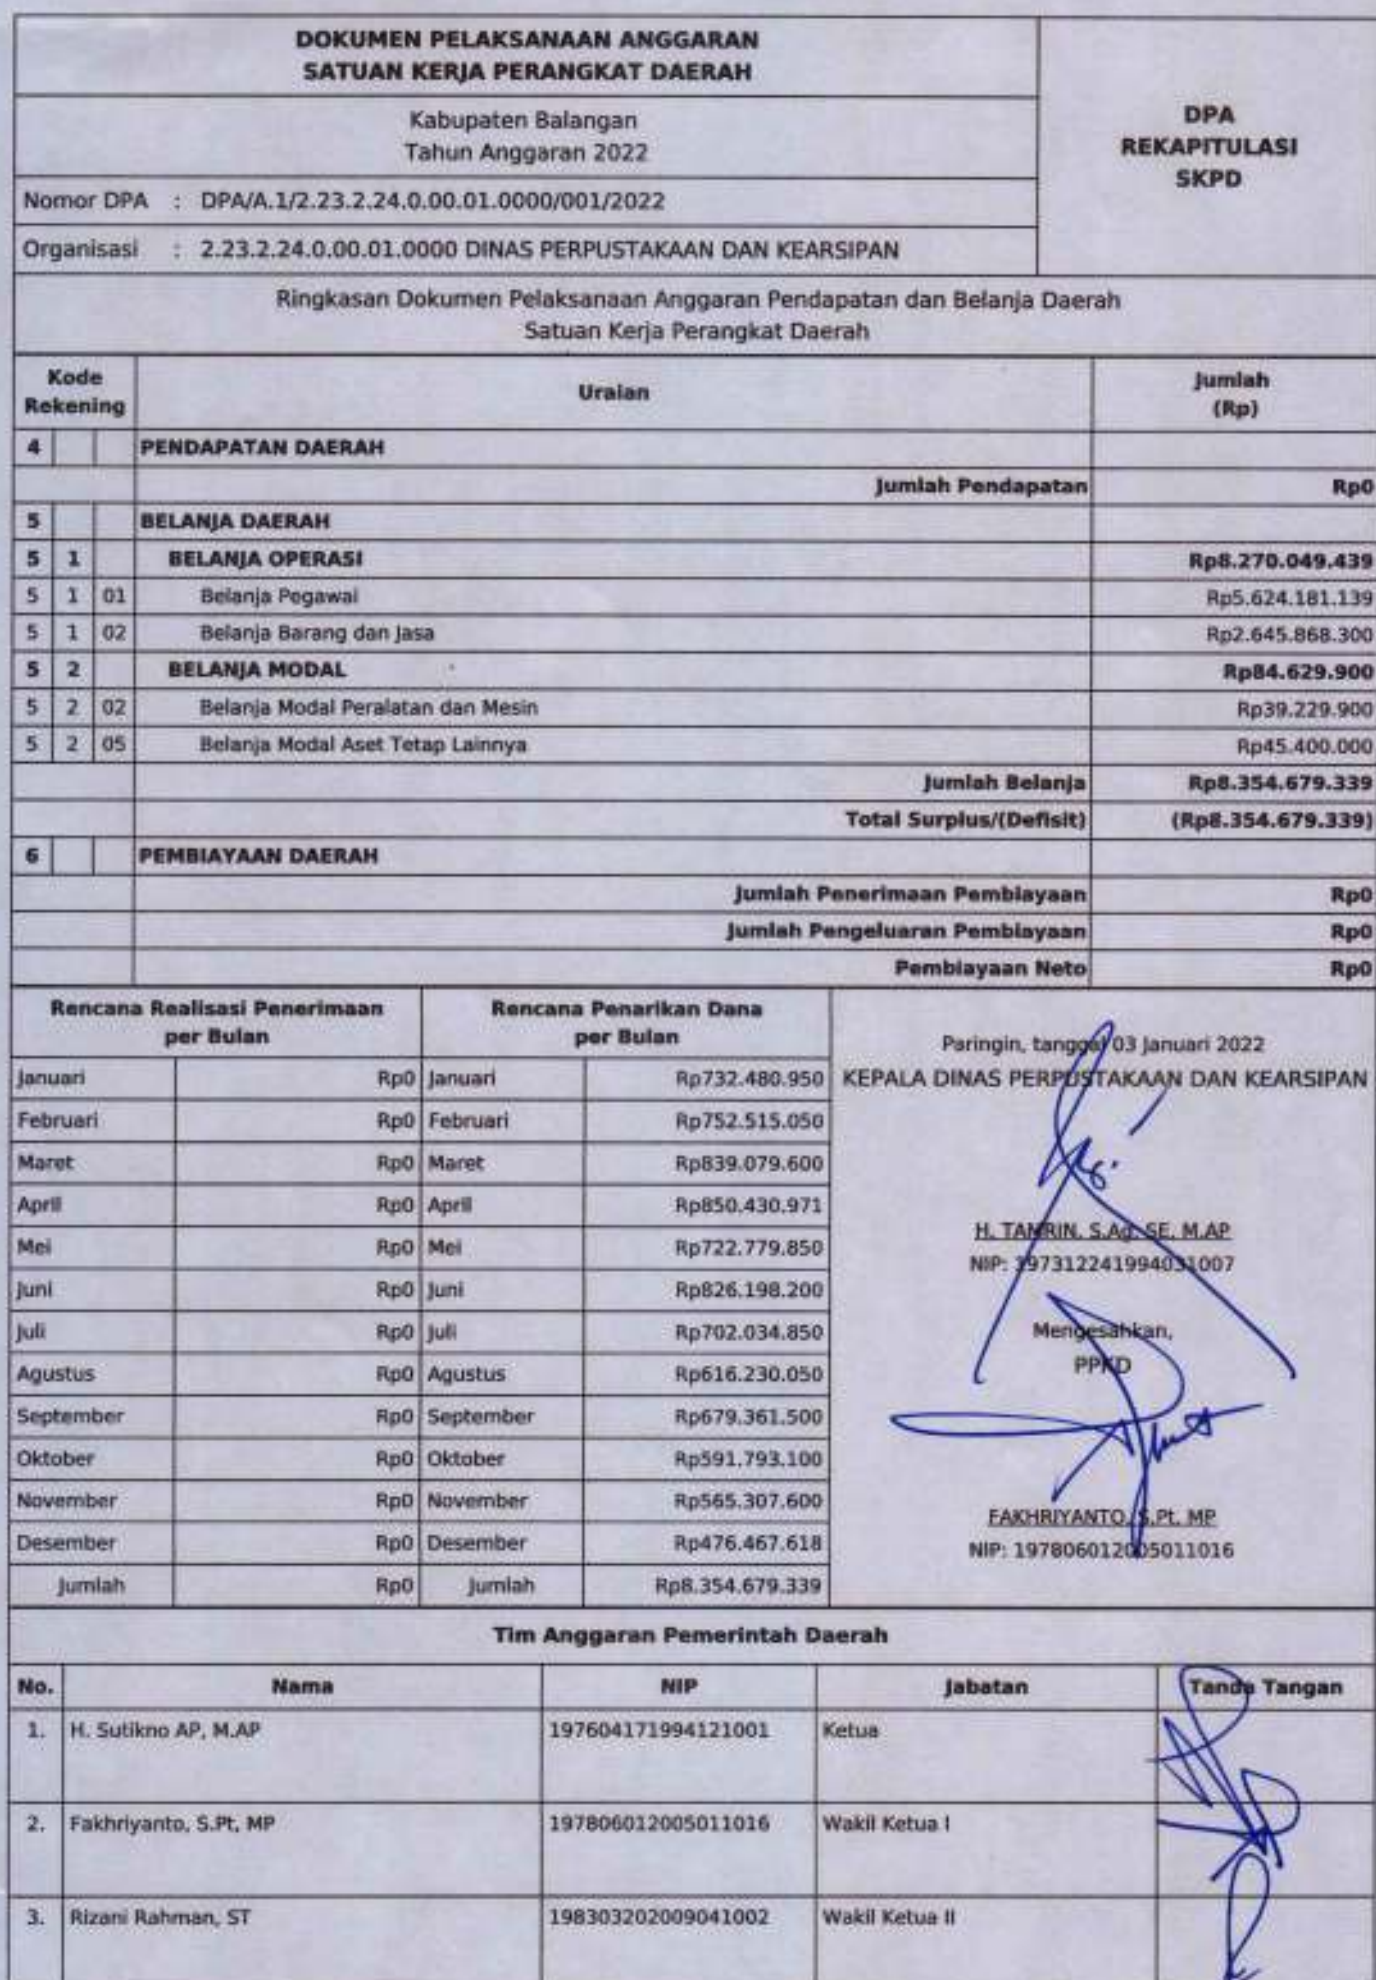 DOKUMEN PELAKSANAAN ANGGARAN
SATUAN KERJA PERANGKAT DAERAH
DPA
REKAPITULASI
SKPD
Kabupaten Balangan
Tahun Anggaran 2022
Nomor DPA : DPA/A.1/2.23.2.24.0.00.01.0000/001/2022
Organisasi : 2.23.2.24.0.00.01.0000 DINAS PERPUSTAKAAN DAN KEARSIPAN
Ringkasan Dokumen Pelaksanaan Anggaran Pendapatan dan Belanja Daerah
Satuan Kerja Perangkat Daerah
Kode Rekening Uraian Jumlah (Rp)
4 PENDAPATAN DAERAH
Jumlah Pendapatan Rp0
5 BELANJA DAERAH
5 1 BELANJA OPERASI Rp8.270.049.439
5 1 01 Belanja Pegawai Rp5.624.181.139
5 1 02 Belanja Barang dan Jasa Rp2.645.868.300
5 2 BELANJA MODAL Rp84.629.900
5 2 02 Belanja Modal Peralatan dan Mesin Rp39.229.900
5 2 05 Belanja Modal Aset Tetap Lainnya Rp45.400.000
Jumlah Belanja Rp8.354.679.339
Total Surplus/(Defisit) (Rp8.354.679.339)
6 PEMBIAYAAN DAERAH
Jumlah Penerimaan Pembiayaan Rp0
Jumlah Pengeluaran Pembiayaan Rp0
Pembiayaan Neto Rp0
Rencana Realisasi Penerimaan per Bulan Rencana Penarikan Dana per Bulan
Januari Rp0 Januari Rp732.480.950
Februari Rp0 Februari Rp752.515.050
Maret Rp0 Maret Rp839.079.600
April Rp0 April Rp850.430.971
Mei Rp0 Mei Rp722.779.850
Juni Rp0 Juni Rp826.198.200
Juli Rp0 Juli Rp702.034.850
Agustus Rp0 Agustus Rp616.230.050
September Rp0 September Rp679.361.500
Oktober Rp0 Oktober Rp591.793.100
November Rp0 November Rp565.307.600
Desember Rp0 Desember Rp476.467.618
Jumlah Rp0 Jumlah Rp8.354.679.339
Paringin, tanggal 03 Januari 2022
KEPALA DINAS PERPUSTAKAAN DAN KEARSIPAN
H. TAMRIN, S.Ag. SE, M.AP
NIP: 197312241994031007
Mengesahkan,
PPKD
FAKHRIYANTO, S.Pt. MP
NIP: 197806012005011016
Tim Anggaran Pemerintah Daerah
No. Nama NIP Jabatan Tanda Tangan
1. H. Sutikno AP, M.AP 197604171994121001 Ketua
2. Fakhriyanto, S.Pt, MP 197806012005011016 Wakil Ketua I
3. Rizani Rahman, ST 198303202009041002 Wakil Ketua II